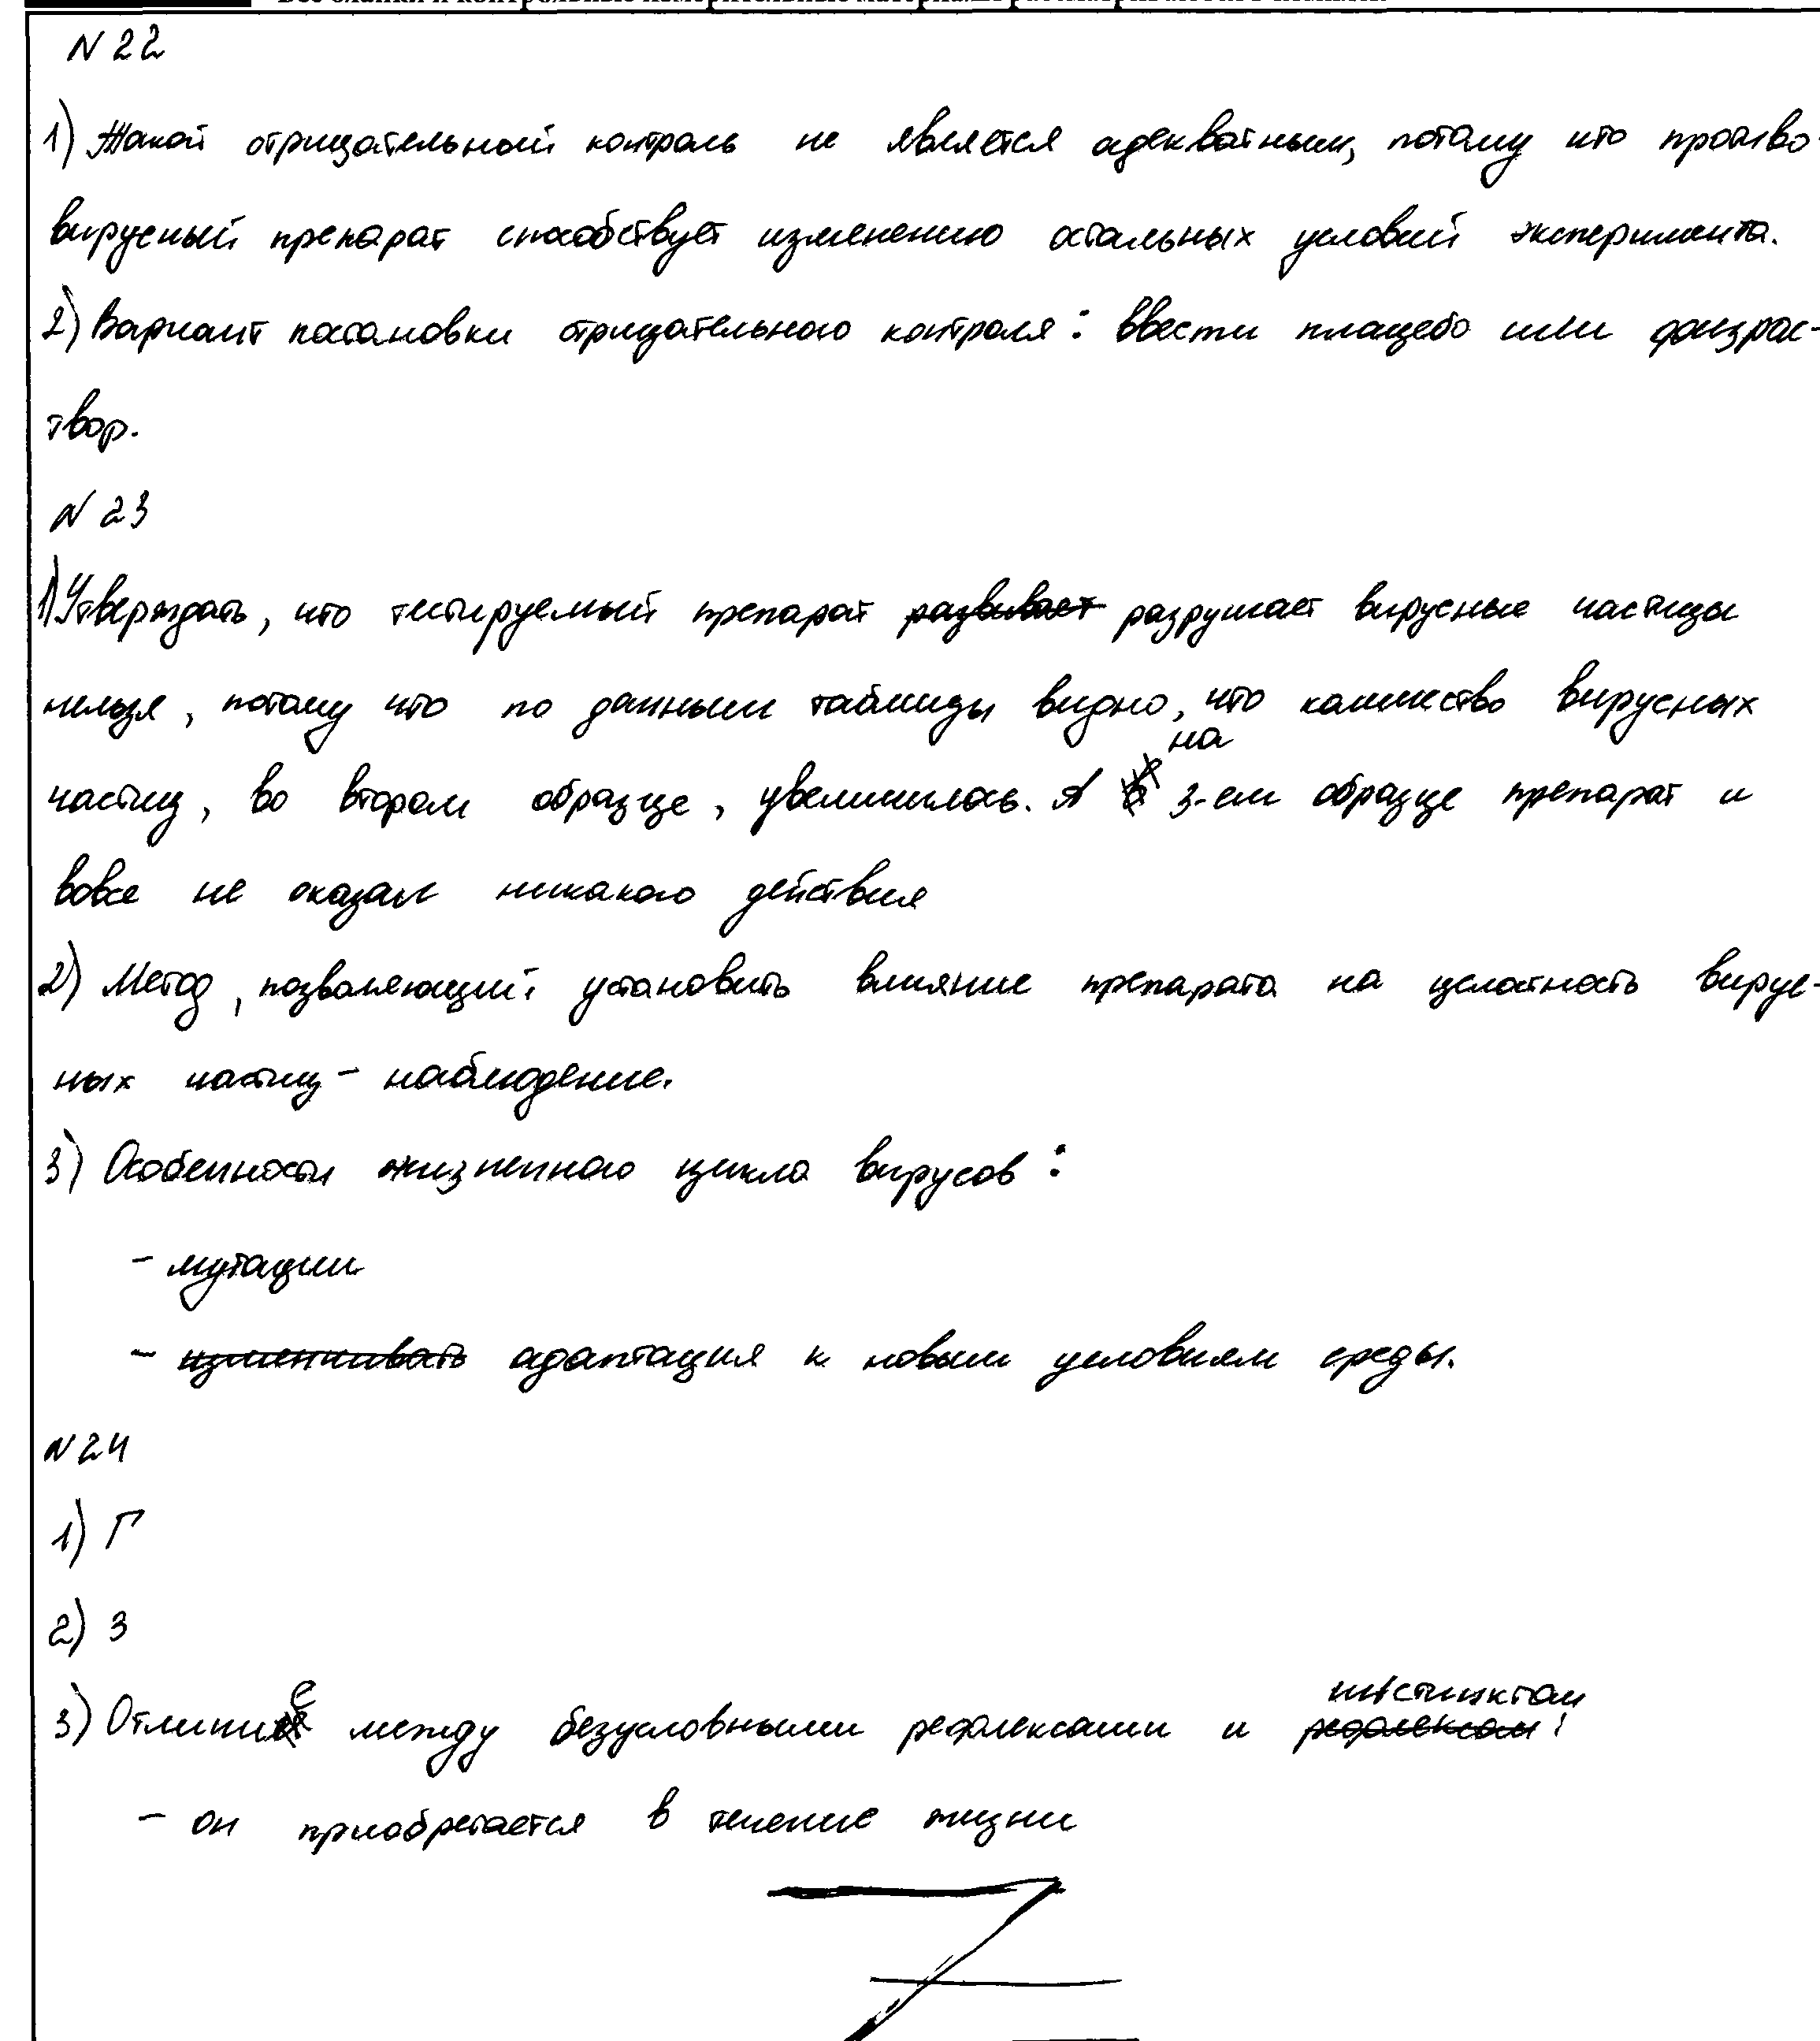 N 22
1) Такой отрицательный контроль не является адекватным, потому что противо-
вирусный препарат способствует изменению остальных условий эксперимента.
2) Вариант постановки отрицательного контроля: ввести плацебо или физрас-
твор.
N 23
1) Утверждать, что тестируемый препарат разрушает вирусные частицы
нельзя, потому что по данным таблицы видно, что количество вирусных
частиц, во втором образце, увеличилось. А на 3-ем образце препарат и
вовсе не оказал никакого действия
2) Метод, позволяющий установить влияние препарата на целостность вирус-
ных частиц - наблюдение.
3) Особенности жизненного цикла вирусов:
- мутации
- адаптация к новым условиям среды.
N 24
1) Г
2) 3
3) Отличие между безусловными рефлексами и инстинктом:
- он приобретается в течение жизни